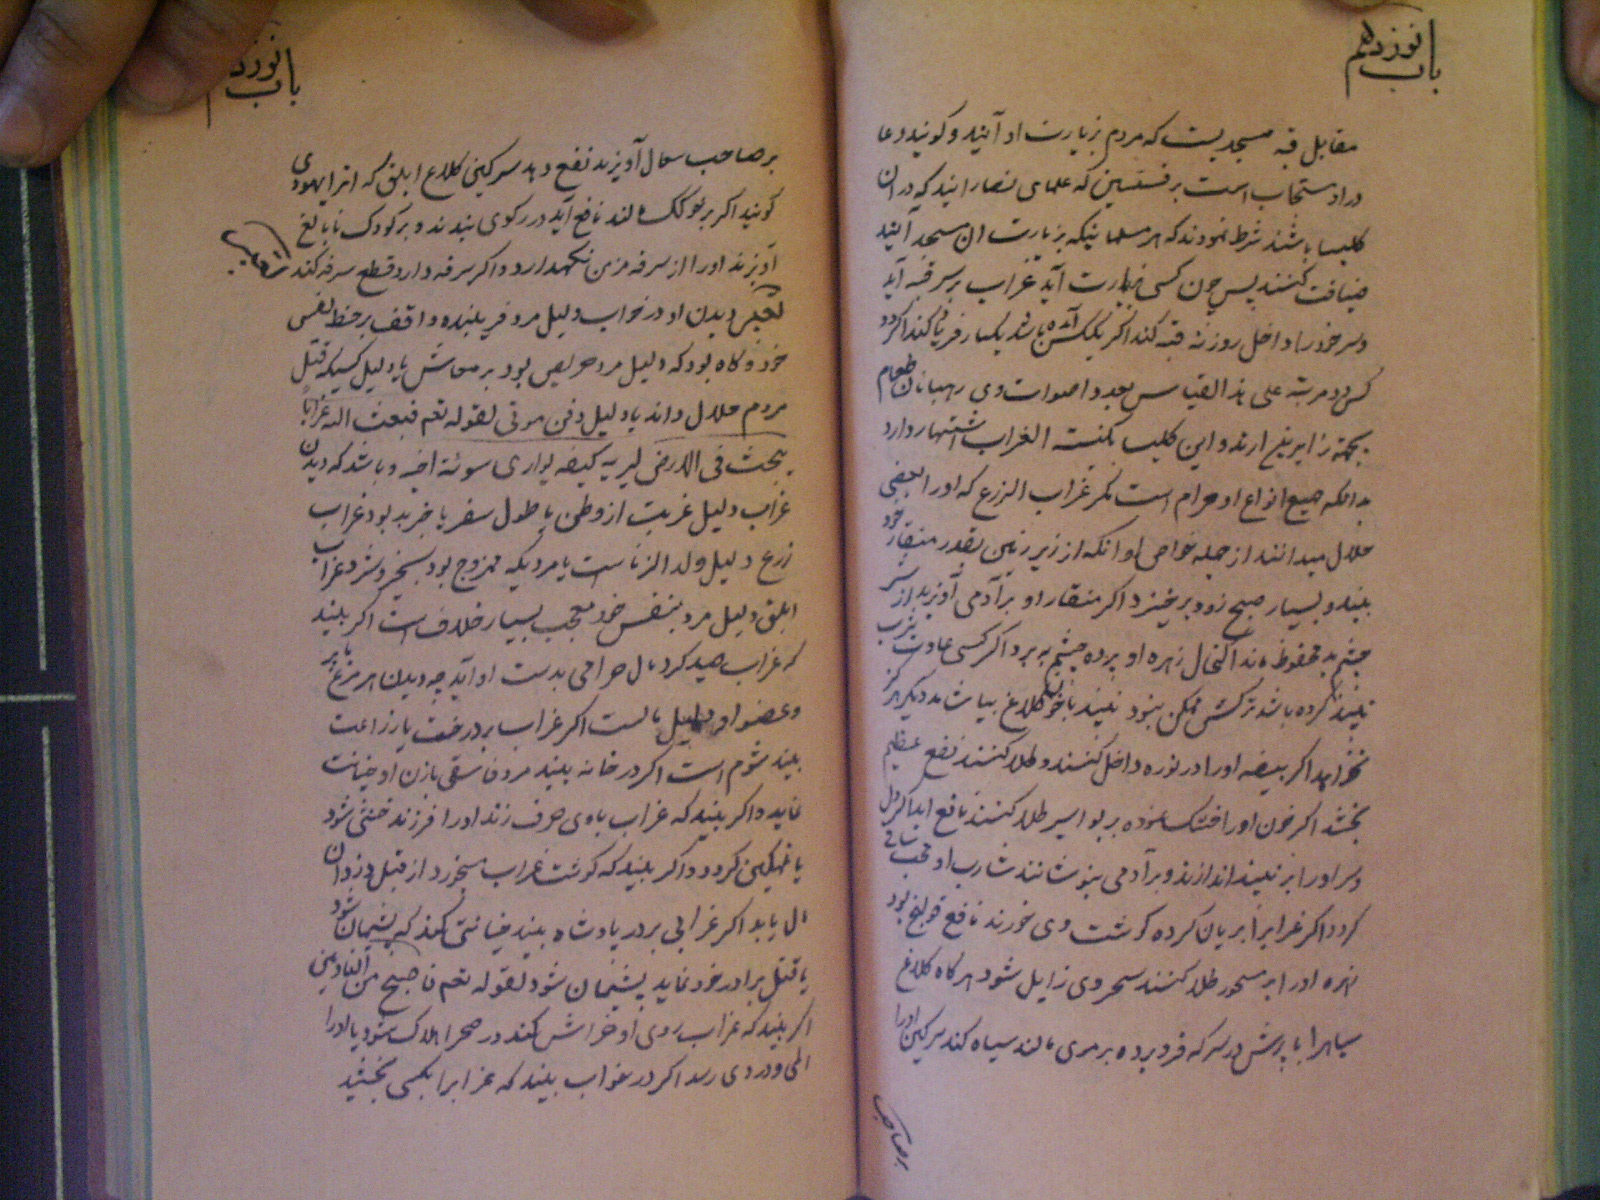 باب نوزدهم
مقابل قبه مسجدیست که مردم بزیارت او آیند و کویند دعا
در او مستجاب است بر قسیسین که علمای نصارا یند که در ان
کلیسا باشند شرط نمودند که هر مسلمانیکه بزیارت ان مسجد آیند
ضیافت کنند پس چون کسی بزیارت آید غراب بر سر قبه آید
و سر خود را داخل روزنه قبه کند اکر یککس آمده باشد یکبار فریاد کند اکر دو
کس دو مرتبه علی هذا القیاس بعدد اصوات وی رهبانان طعام
بجهة زایرین ارند و این کلیسا بکنسة الغراب اشتهار دارد
بدانکه جمیع انواع او حرام است مکر غراب الزرع که او را بعضی
حلال میدانند از جمله خواص او انکه از زیر زمین بقدر منقار خود
بیند و بسیار صبح زود برخیزد اکر منقار او بر آدمی آویزند از سر
چشم بد محفوظ ماند اکتحال زهره او پرده چشم به برد اکر کسی عادت بشرب
نبیند کرده باشد ترکش ممکن نبود نبیند با خون کلاغ بیاشامد دیکر هرکز
نخواهد اکر بیضه او را در نوره داخل کنند و طلا کنند نفع عظیم
بخشد اکر خون او را خشک نموده بر بواسیر طلا کنند نافع اید اکر دل
و سر او را بر نبیند اندازند و بر آدمی بنوشانند شارب او محب ساقی
کردد اکر غرابرا بریان کرده کوشت وی خورند نافع قولنج بود
زهره او را بر مسحور طلا کنند سحر وی زایل شود هر کاه کلاغ
سیاهرا با پرش در سرکه فرو برده بر موی مالند سیاه کند سرکین او را
بر صاحب
باب نوزدهم
بر صاحب سعال آویزند نفع دهد سرکین کلاغ ابلق که انرا یهودی
کویند اکر بر مالند نافع آید در رکوی بندند و بر کودک نابالغ
آویزند او را از سرفه مزمن نکهدارد و اکر سرفه دارد قطع سرفه کند
تعبیر دیدن او در خواب دلیل مرد فریبنده واقف بر حظ نفس
خود و کاه بود که دلیل مرد حریص بود بر معاش یا دلیل کسیکه قتل
مردم حلال داند یا دلیل دفن موتی لقوله تعم فبعث الله غرابا
یبحث فی الارض لیریه کیف یواری سوئة اخیه و باشد که دیدن
غراب دلیل غربت از وطن یا طول سفر یا خبر بد بود غراب
زرع دلیل ولد الزنا است یا مردیکه ممزوج بود بخیر و شر و غراب
ابلق دلیل مرد بنفس خود معجب بسیار خلاف است اکر بیند
که غراب صید کرد مال حرامی بدست او آید چه دیدن هر مرغ یا پر
و عضو او دلیل مالست اکر غراب بر درخت یا زراعت
بیند شوم است اکر در خانه بیند مرد فاسقی با زن او خیانت
نماید و اکر بیند که غراب با وی حرف زند او را فرزند خبیثی شود
یا غمکین کردد و اکر بیند که کوشت غراب میخورد از قبل دزدان
مال یابد اکر غرابی بر در پادشاه بیند خیانتی کند که پشیمان شود
یا قتل برادر خود نماید پشیمان شود لقوله تعم فاصبح من النادمین
اکر بیند که غراب روی او خراش کند در صحرا هلاک شود یا او را
المی و دردی رسد اکر در خواب بیند که غرابرا بکسی بخشید